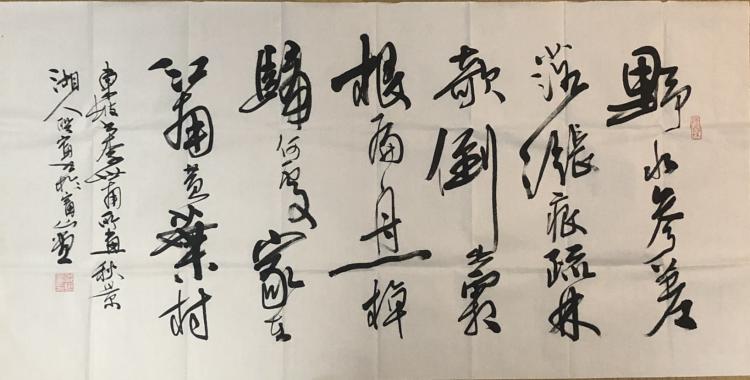 野水參差
落漲痕疏林
欹倒出霜
根扁舟一棹
歸何處家在
江南黃葉村
東坡書李世南所畫秋景
湖人